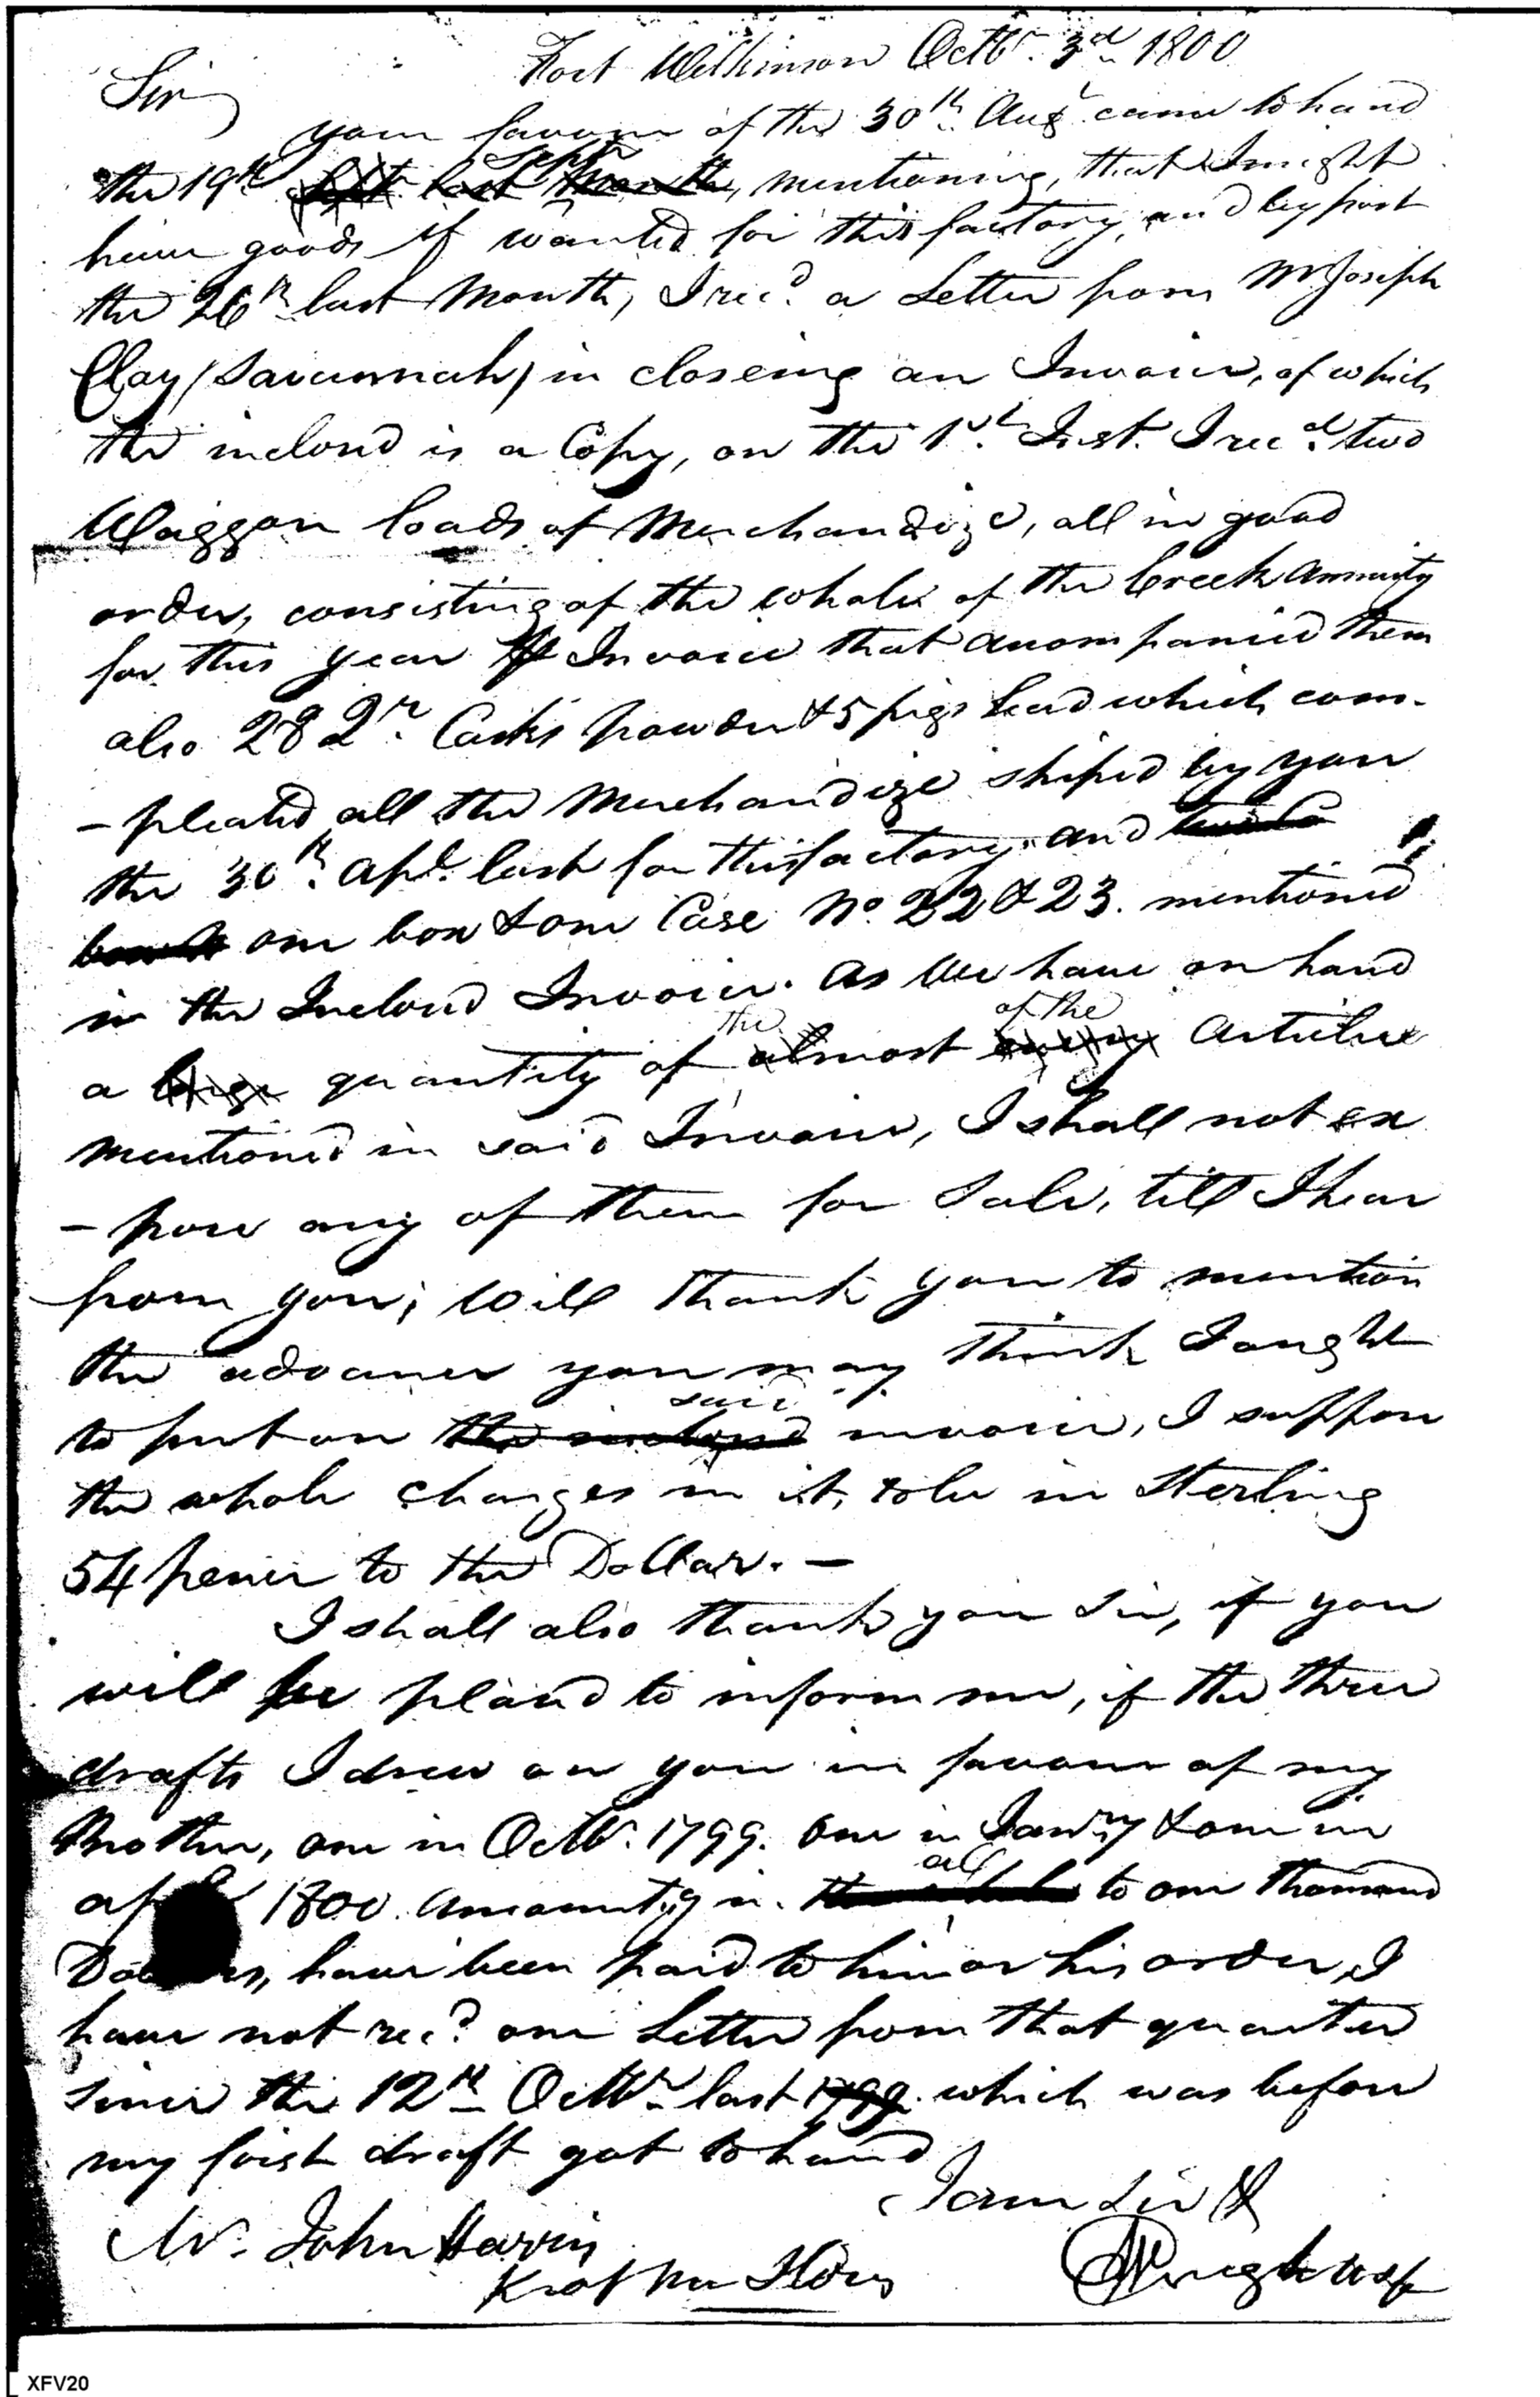 Fort Wilkinson Octbr. 3d. 1800
Sir
your favour of the 30th. Augt. came to hand
the 19th Septr last month, mentioning, that I might
have goods if wanted for this factory, and by post
the 26th last Month, I recd. a Letter from Mr Joseph
Clay (Savannah) in closeing an Invoice, of which
the inclosd is a Copy, on the 1st. Inst. I recd. two
Waggon loads of Merchandize, all in good
order, consisting of the whole of the Creek annuity
for this year Invoice that accompanied them
also 28 Qr. Casks powder & 5 pigs Lead which com-
-pleated all the Merchandize shiped by you
the 30th. Apl. last for this factory, and
one box & one Case No. 22 & 23. mentioned
in the Inclosd Invoice. As We have on hand
the of the
a large quantity of almost every Articles
mentioned in said Invoice, I shall not ex
-pose any of them for Sale, till I hear
from you; Will thank you to mention
the advance you may think I ought
said
to put on the inclosed invoice, I suppose
the whole charges in it, to be in Sterling
54 pence to the Dollar. —
I shall also thank you Sir, if you
will be pleasd to inform me, if the three
drafts I drew on you in favour of my
Brother, one in Octbr. 1799. One in Janry & one in
all
1800. Amounting in to one thousand
Dollars, have been paid to him or his order, I
have not recd. one Letter from that quarter
since the 12th Octbr. last 1799. which was before
my first draft got to hand
I am Sir &
Mr. John Harris